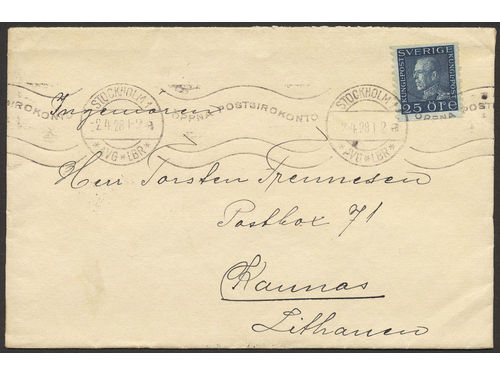 SVERIGE
KUNGLPOST KUNGLPOST
25 ÖRE
STOCKHOLM 1
-2.4.28 1-2
*AVG*LBR*
ÖPPNA POSTGIROKONTO
STOCKHOLM 1
-2.4.28 1-2
*AVG*LBR*
ÖPPNA
Ingeniören
Herr Torsten Trennesen
Postbox 71
Kaunas
Lithauen